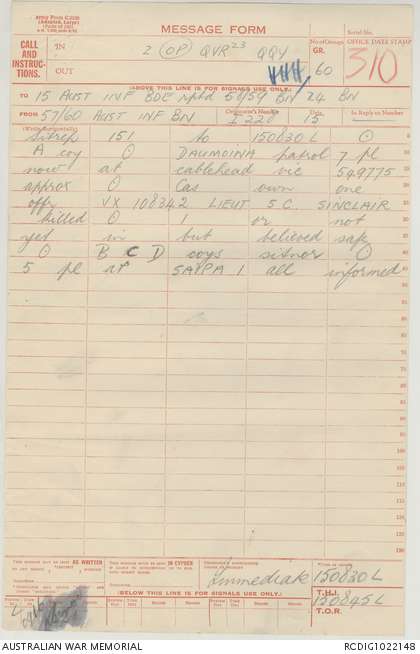 Army Form C.2136
MESSAGE FORM
Serial No.
CALL AND INSTRUCTIONS.
IN 2 (OP) QVR 23 QQY
OUT
No. of Groups
GR. 60
OFFICE DATE STAMP
310
(ABOVE THIS LINE IS FOR SIGNALS USE ONLY.)
TO 15 AUST INF BDE rptd 58/59 BN 24 BN
FROM 57/60 AUST INF BN
Originator's Number I 220
Date 15
In Reply to Number
(Write Horizontally)
Sitrep 151 to 150830L O
A coy O DAUMOINA patrol 7 pl
now at cablehead vic 549775
approx O Cas own one
offr VX 108342 LIEUT S.C. SINCLAIR
killed O 1 or not
yet in but believed safe
O B C D coys sitnor O
5 pl at SAIPA 1 all informed
THIS MESSAGE MAY BE SENT AS WRITTEN
THIS MESSAGE MUST BE SENT IN CYPHER
Immediate 150830L
T.H.I.
150845L
T.O.R.
(BELOW THIS LINE IS FOR SIGNALS USE ONLY.)
AUSTRALIAN WAR MEMORIAL
RCDIG1022148